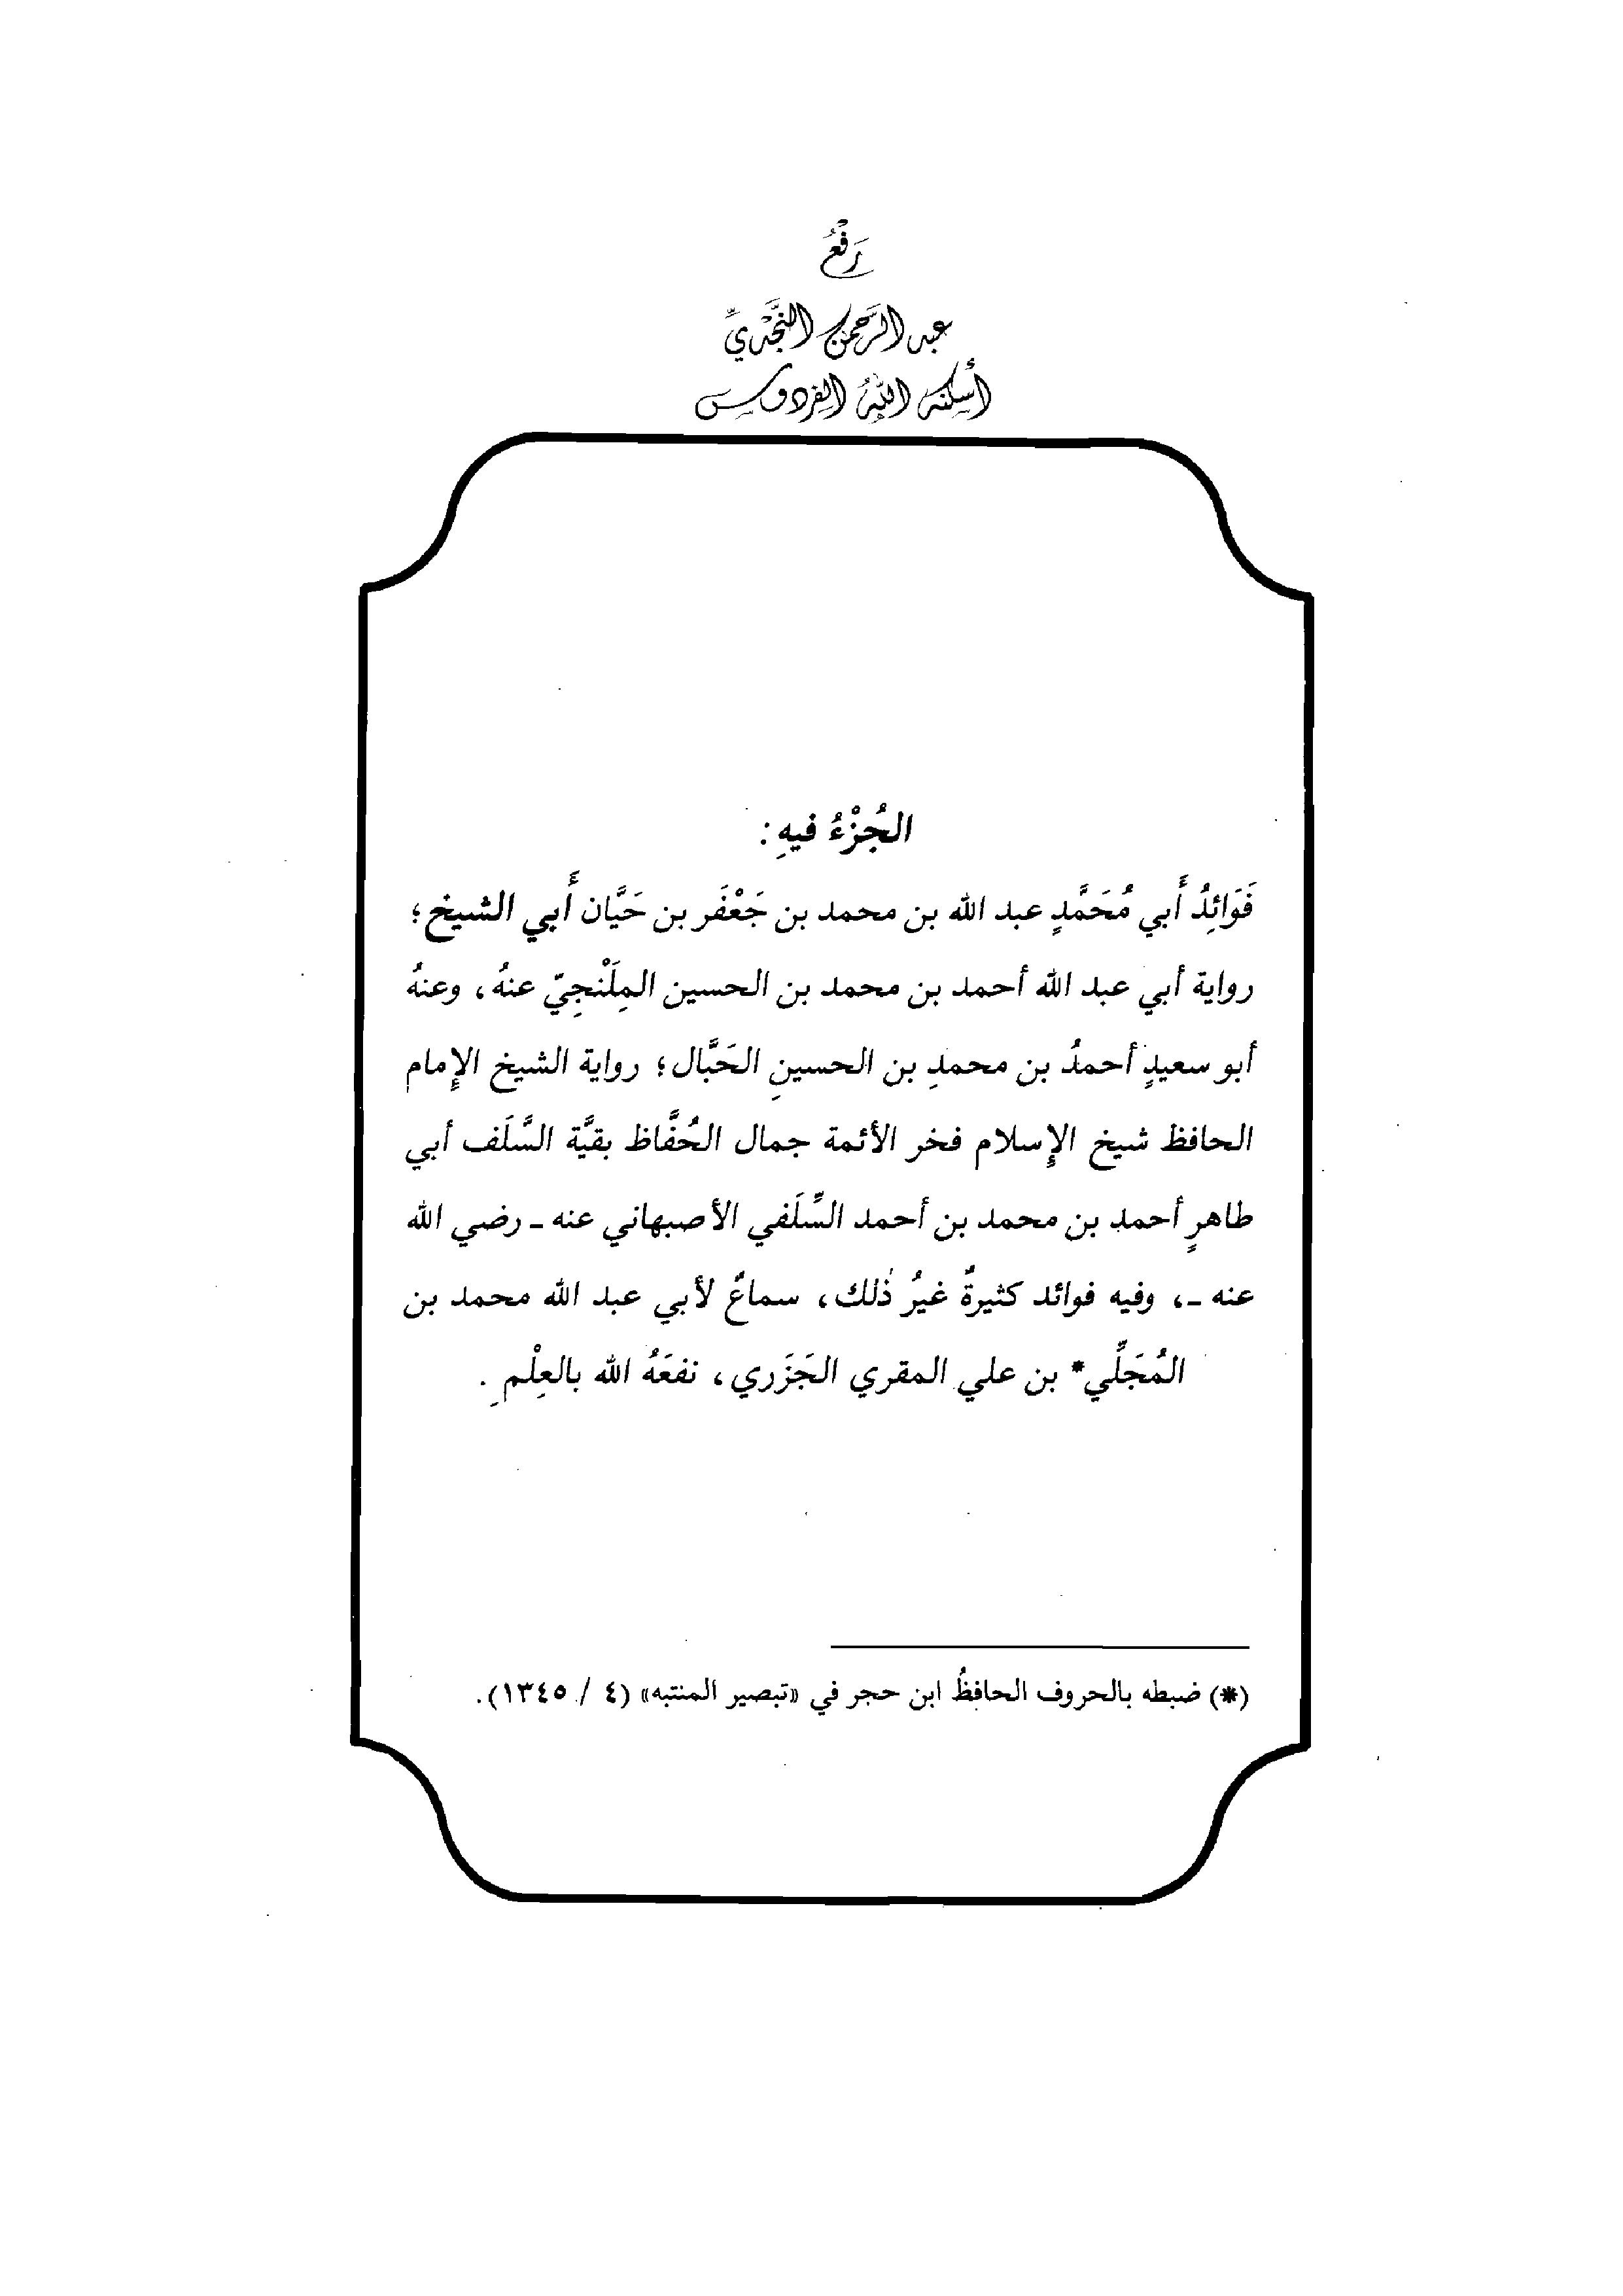 رَفْعُ
عبد الرَّحمن النَّجْديِّ
أسكنه اللهُ الفردوس
الجُزْءُ فيهِ :
فَوَائِدُ أَبي مُحَمَّدٍ عبد الله بن محمد بن جَعْفَر بن حَيَّان أَبي الشيخ ؛
رواية أبي عبد الله أحمد بن محمد بن الحسين المِلَنْجِيّ عنهُ ، وعنهُ
أبو سعيدٍ أحمدُ بن محمدِ بن الحسينِ الحَبَّال ؛ رواية الشيخ الإمام
الحافظ شيخ الإسلام فخر الأئمة جمال الحُفَّاظ بقيَّة السَّلَف أبي
طاهرٍ أحمد بن محمد بن أحمد السِّلَفي الأصبهاني عنه ـ رضي الله
عنه ـ ، وفيه فوائد كثيرةٌ غيرُ ذٰلك ، سماعٌ لأبي عبد الله محمد بن
المُجَلِّي* بن علي المقري الجَزَري ، نفعَهُ الله بالعِلْمِ .
(*) ضبطه بالحروف الحافظُ ابن حجر في «تبصير المنتبه» (٤ / ١٣٤٥).